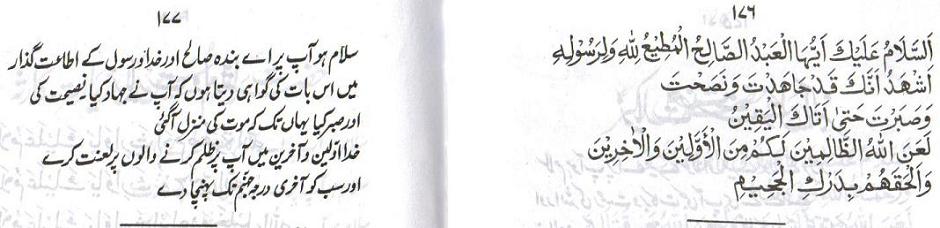 ١٧٦
اَلسَّلَامُ عَلَيْكَ اَيُّهَا الْعَبْدُ الصَّالِحُ الْمُطِيْعُ لِلّٰهِ وَلِرَسُوْلِهٖ
اَشْهَدُ اَنَّكَ قَدْ جَاهَدْتَ وَنَصَحْتَ
وَصَبَرْتَ حَتّٰى اَتَاكَ الْيَقِيْنُ
لَعَنَ اللهُ الظَّالِمِيْنَ لَكُمْ مِنَ الْأَوَّلِيْنَ وَالْاٰخِرِيْنَ
وَاَلْحَقَهُمْ بِدَرَكِ الْجَحِيْمِ
١٧٧
سلام ہو آپ پر اے بندہ صالح اور خدا و رسول کے اطاعت گذار
میں اس بات کی گواہی دیتا ہوں کہ آپ نے جہاد کیا نصیحت کی
اور صبر کیا یہاں تک کہ موت کی منزل آگئی
خدا اولین و آخرین میں آپ پر ظلم کرنے والوں پر لعنت کرے
اور سب کو آخری درجہ جہنم تک پہنچا دے